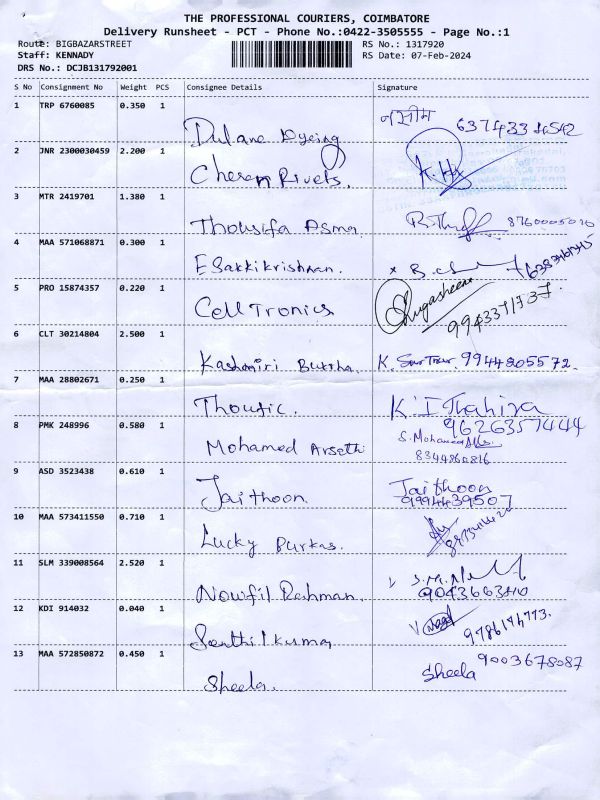 THE PROFESSIONAL COURIERS, COIMBATORE
Delivery Runsheet - PCT - Phone No.:0422-3505555 - Page No.:1
Route: BIGBAZARSTREET RS No.: 1317920
Staff: KENNADY RS Date: 07-Feb-2024
DRS No.: DCJB131792001
S No Consignment No Weight PCS Consignee Details Signature
1 TRP 6760085 0.350 1 नसीम
Dulane Dyeing
2 JNR 2300030459 2.200 1
Cheran Rivets.
3 MTR 2419701 1.380 1
Thousifa Asma 8760005010
4 MAA 571068871 0.300 1
Esakkikrishnan.
5 PRO 15874357 0.220 1
Cell Tronics
6 CLT 30214804 2.500 1
Kashmiri Buttha. 9944805572.
7 MAA 28802671 0.250 1
Thoufic. K.I Thahira
9626357444
8 PMK 248996 0.580 1 S. Mohamed
Mohamed 8344860816
9 ASD 3523438 0.610 1
Jaithoon. Jaithoon
9994439507
10 MAA 573411550 0.710 1
Lucky Purkas.
11 SLM 339008564 2.520 1
Nowfil Rahman. 9043663410
12 KDI 914032 0.040 1
Senthilkumar
13 MAA 572850872 0.450 1 9003678087
Sheela. Sheela